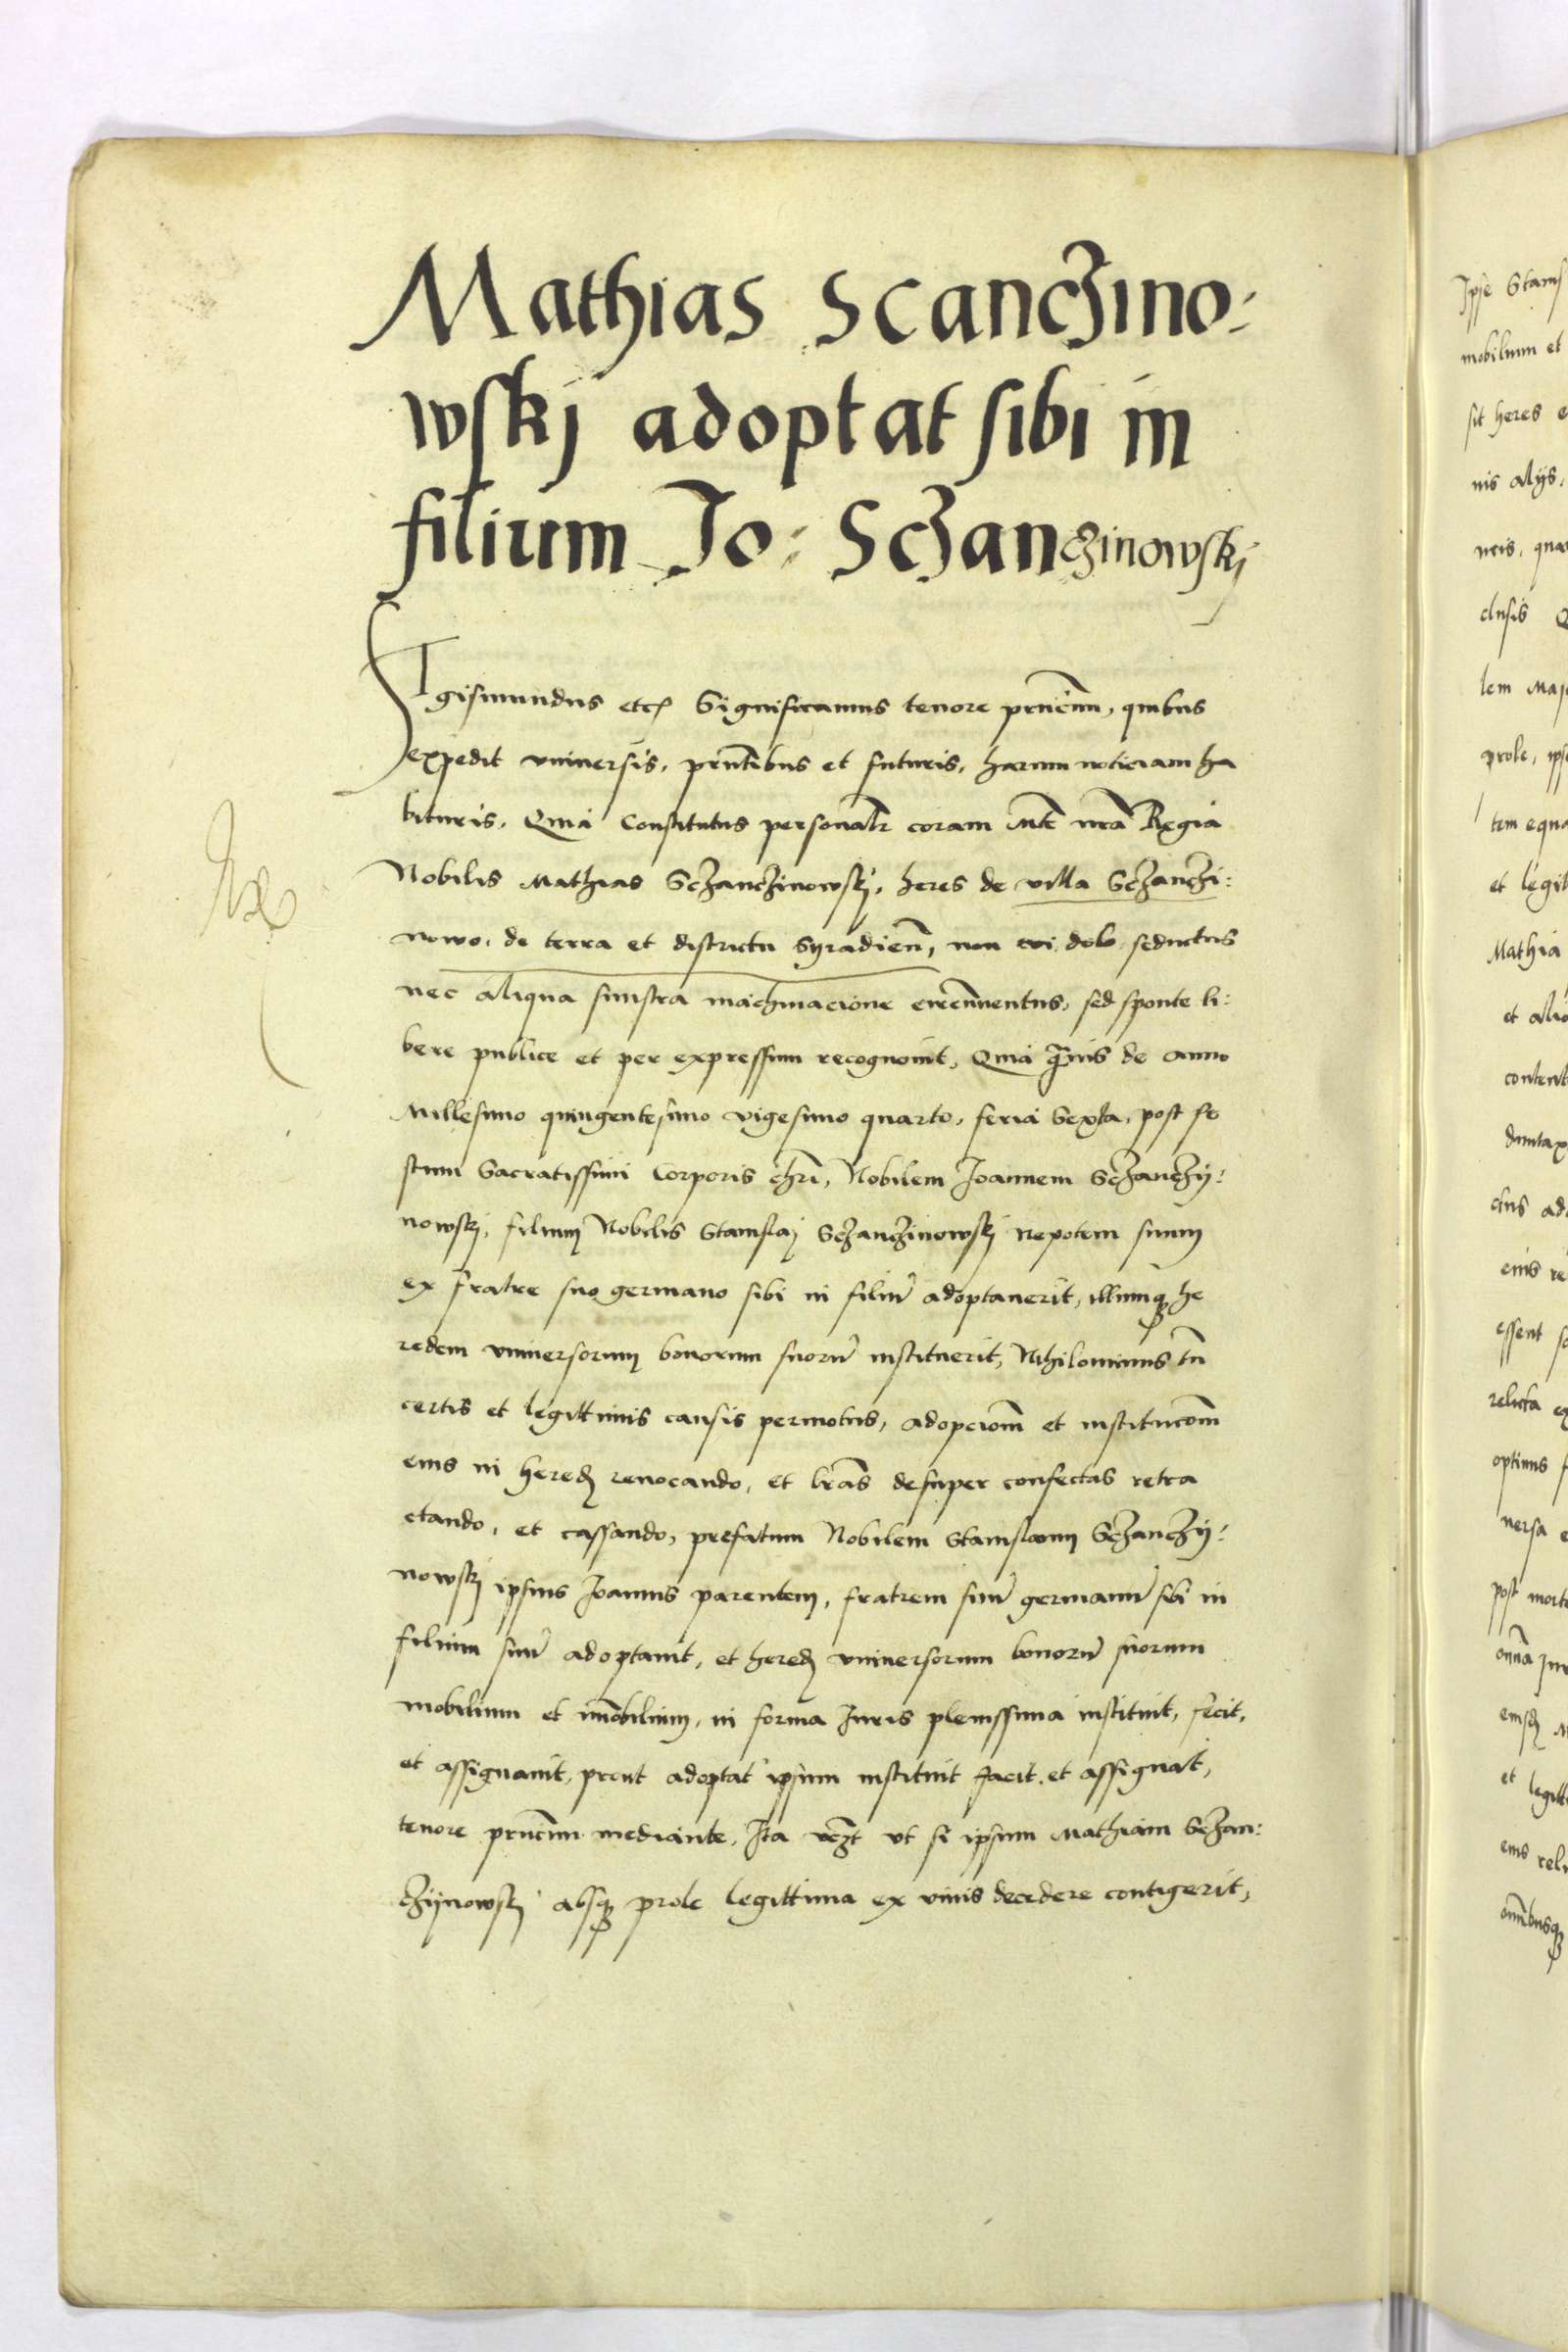 Mathias Scanczino:
wskj adoptat sibi in
filium Io: Sczanczinowskj
Sigismundus etc̄ Significamus tenore pn̄cium, quibus
expedit vniuersis, pn̄tibus et futuris, harum noticiam ha
bituris, Quia Constitutus personalr̄ coram Mte nr̄a Regia
Nobilis Mathias Sczanczinowskj, heres de villa Sczanczi:
nowo, de terra et districtu Syradien̄, non vi dolo seductus
nec aliqua sinistra machinacione circūuentus, sed sponte li:
bere publice et per expressum recognouit, Quia q̄uis de anno
Millesimo quingentesimo vigesimo quarto, feria Sexta, post fe
stum Sacratissimi Corporis chrī, Nobilem Joannem Sczanczy:
nowskj, filium Nobilis Stanislaj Sczanczinowskj Nepotem suum
ex fratre suo germano sibi in filiū adoptauerit, illumq̨ he
redem vniuersorum bonorum suorū instituerit, Nihilominus tn̄
certis et legittimis causis permotus, adopcionē et institucionē
eius in hered̨ reuocando, et lr̄as desuper confectas retra
ctando, et cassando, prefatum Nobilem Stanislaum Sczanczy:
nowskj ipsius Joannis parentem, fratrem suū germanū sibi in
filium suū adoptauit, et hered̨ vniuersorum bonorū suorum
mobilium et im̄obilium, in forma Juris plenissima instituit, fecit,
et assignauit, prout adoptat ipsum instituit facit, et assignat,
tenore pn̄cium mediante, Ita vcz̄t vt si ipsum Mathiam Sczan:
czynowskj absq̨ prole legittima ex viuis decedere contigerit,
Ipse Stanis
mobilium et
sit heres e
nis alijs,
clusis Q
lem Maj
prole, ips
tem equa
et legit
Mathia
et alio
content
duntax
essent
relicta ex
optimus
uersa e
post mort
eiusd̨ M
et legitt
eius reli
omībusq̨